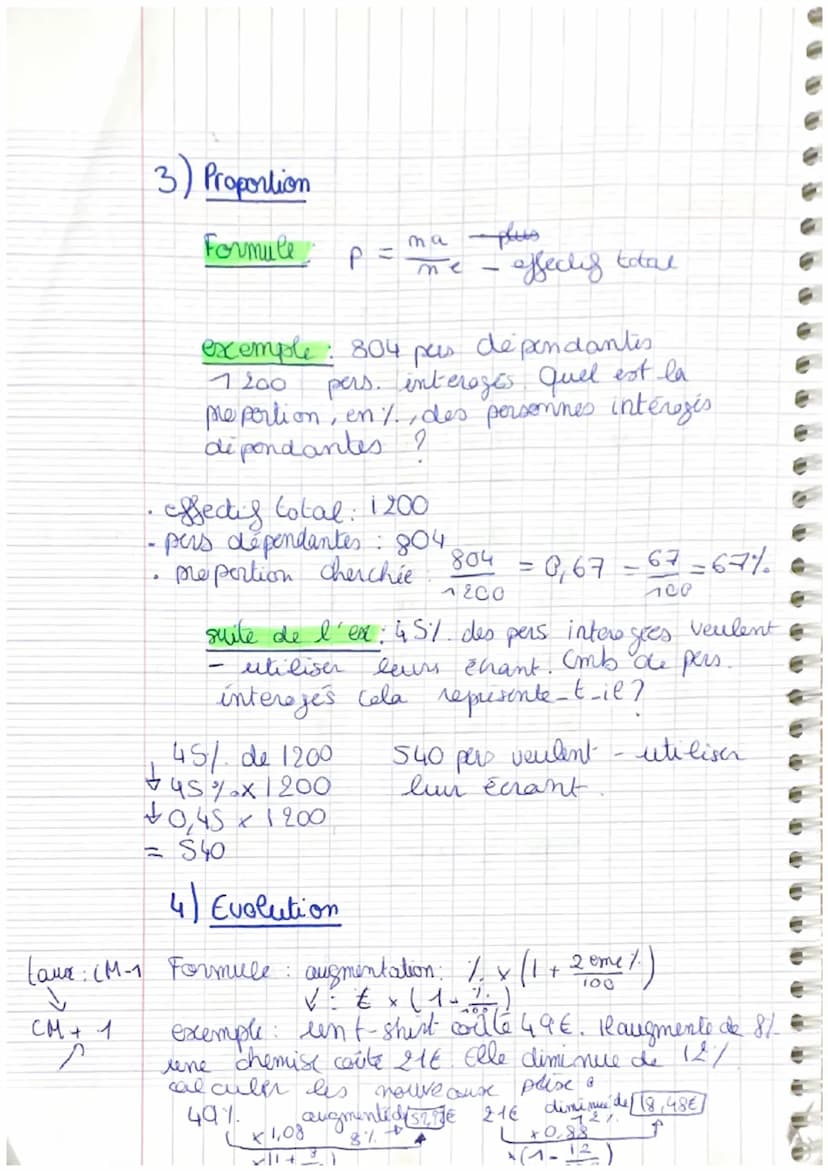 3) Proportion
Formule : p = na/ne - effectif total
exemple : 804 pers dépendantes
1200 pers. interogés. Quel est la
proportion, en %, des personnes intérogés
dépendantes ?
. effectif total : 1200
- pers dépendantes : 804
. proportion cherchée : 804/1200 = 0,67 = 67/100 = 67%
suite de l'ex : 45% des pers interogées veulent
- utiliser leurs écrant. Cmb de pers.
interogés cela représente-t-il ?
45% de 1200 540 pers veulent - utiliser
↓ 45% x 1200 leur écrant.
↓ 0,45 x 1200
= 540
4) Evolution
taux : CM-1 Formule : augmentation : % x (1 + 2eme%/100)
↓ : € x (1 - %/100)
CM + 1 exemple : un t-shirt coûte 49€. Il augmente de 8%
une chemise coûte 21€. Elle diminue de 12%
calculer les nouveaux prix :
49%. augmenté de 52,92€ 21€ diminué de 18,48€
x 1,08 8% x 0,88 12%
x (1 - 12